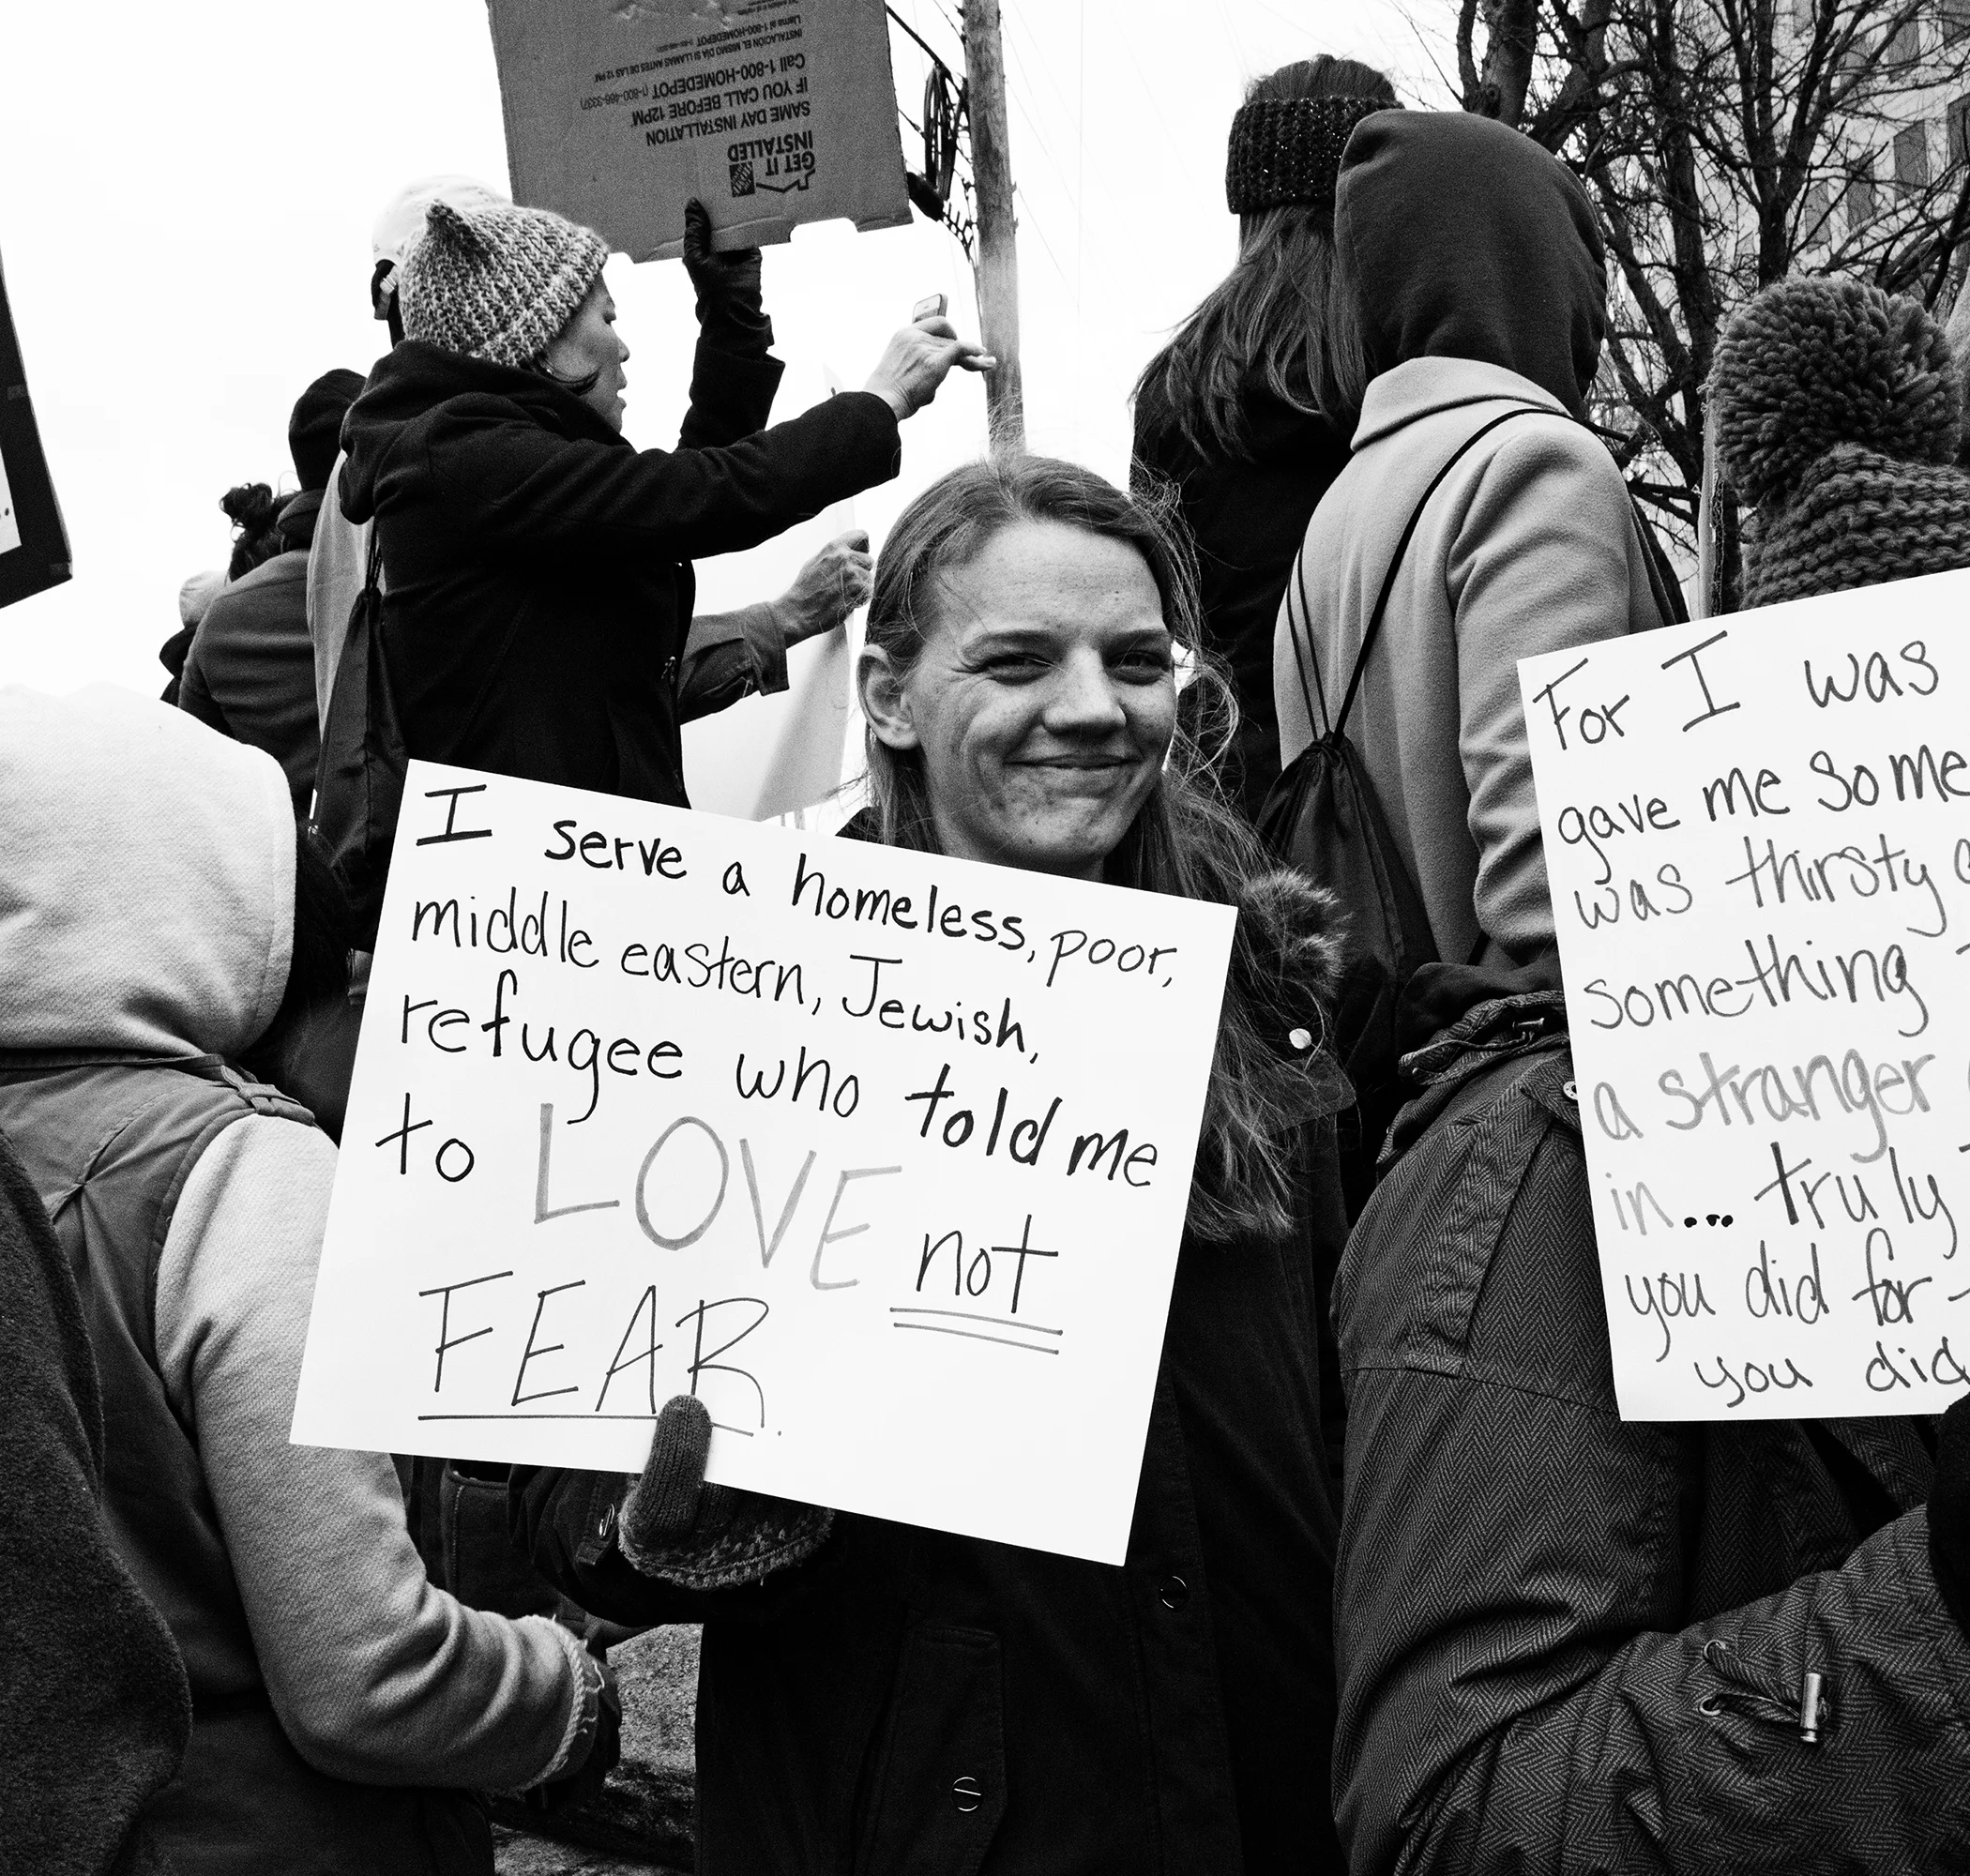 GET IT
INSTALLED
SAME DAY INSTALLATION
IF YOU CALL BEFORE 12PM*
Call 1-800-HOMEDEPOT (1-800-466-3337)
INSTALACIÓN EL MISMO DÍA SI LLAMAS ANTES DE LAS 12 PM*
Llama al 1-800-HOMEDEPOT
I serve a homeless, poor,
middle eastern, Jewish,
refugee who told me
to LOVE not
FEAR.
For I was
gave me some
was thirsty
something
a stranger
in... truly
you did for
you did